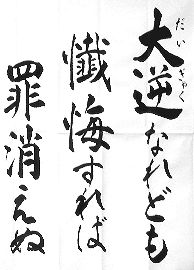 大逆なれども
だいぎゃく
懺悔すれば
罪消えぬ